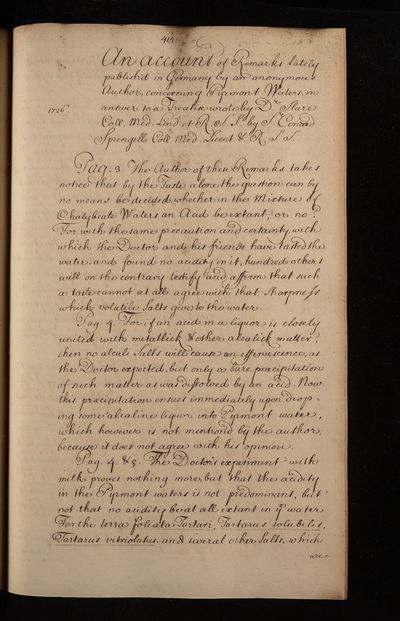 413
An account of Remarks lately
publish'd in Germany by an anonymous
Author, concerning Piermont Waters, in
1726 answer to a Treatise wrote by Dr Slare
Coll. Med. Lond. et R. S. S. by Sr Conrad
Sprengell Coll Med. Licent & R. S. S.
Pag. 3. The Author of these Remarks takes
notice that by the Taste alone the question can by
no means be decided, whether in the Mixture of
Chalybeate Waters an Acid be extant, or no?
For with the same precaution and certainty, with
which the Doctor and his friends have tasted the
water, and found no acidity in it, hundred others
will on the contrary testify and affirm that such
a taste cannot at all agree with that sharpness
which volatile Salts give to the water.
Pag. 4. For, if an acid in a liquor is closely
united with metallick & other alcalick matter,
then no alcali Salts will cause an effervescence, as
the Doctor expected, but only a bare præcipitation
of such matter as was dissolved by an acid. Now
this præcipitation ensues immediately upon drop-
ing some alcaline liquor into Pyrmont water,
which however is not mention'd by the author,
because it does not agree with his opinion.
Pag. 4. & 5. The Doctor's experiment with
milk proves nothing more, but that the acidity
in the Pyrmont waters is not prædominant, but
not that no acidity be at all extant in ye water
For the terra foliata Tartari, Tartarus solubilis,
Tartarus vitriolatus, and several other Salts, which
are